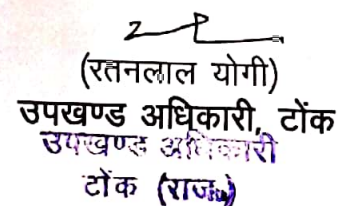 (रतनलाल योगी)
उपखण्ड अधिकारी, टोंक
उपखण्ड अधिकारी
टोंक (राज०)